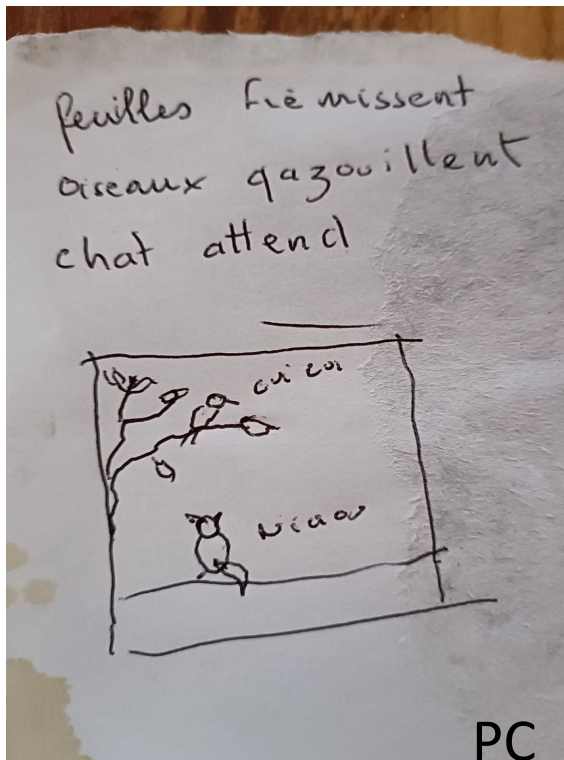 feuilles frémissent
oiseaux gazouillent
chat attend
cui cui
Miaou
PC